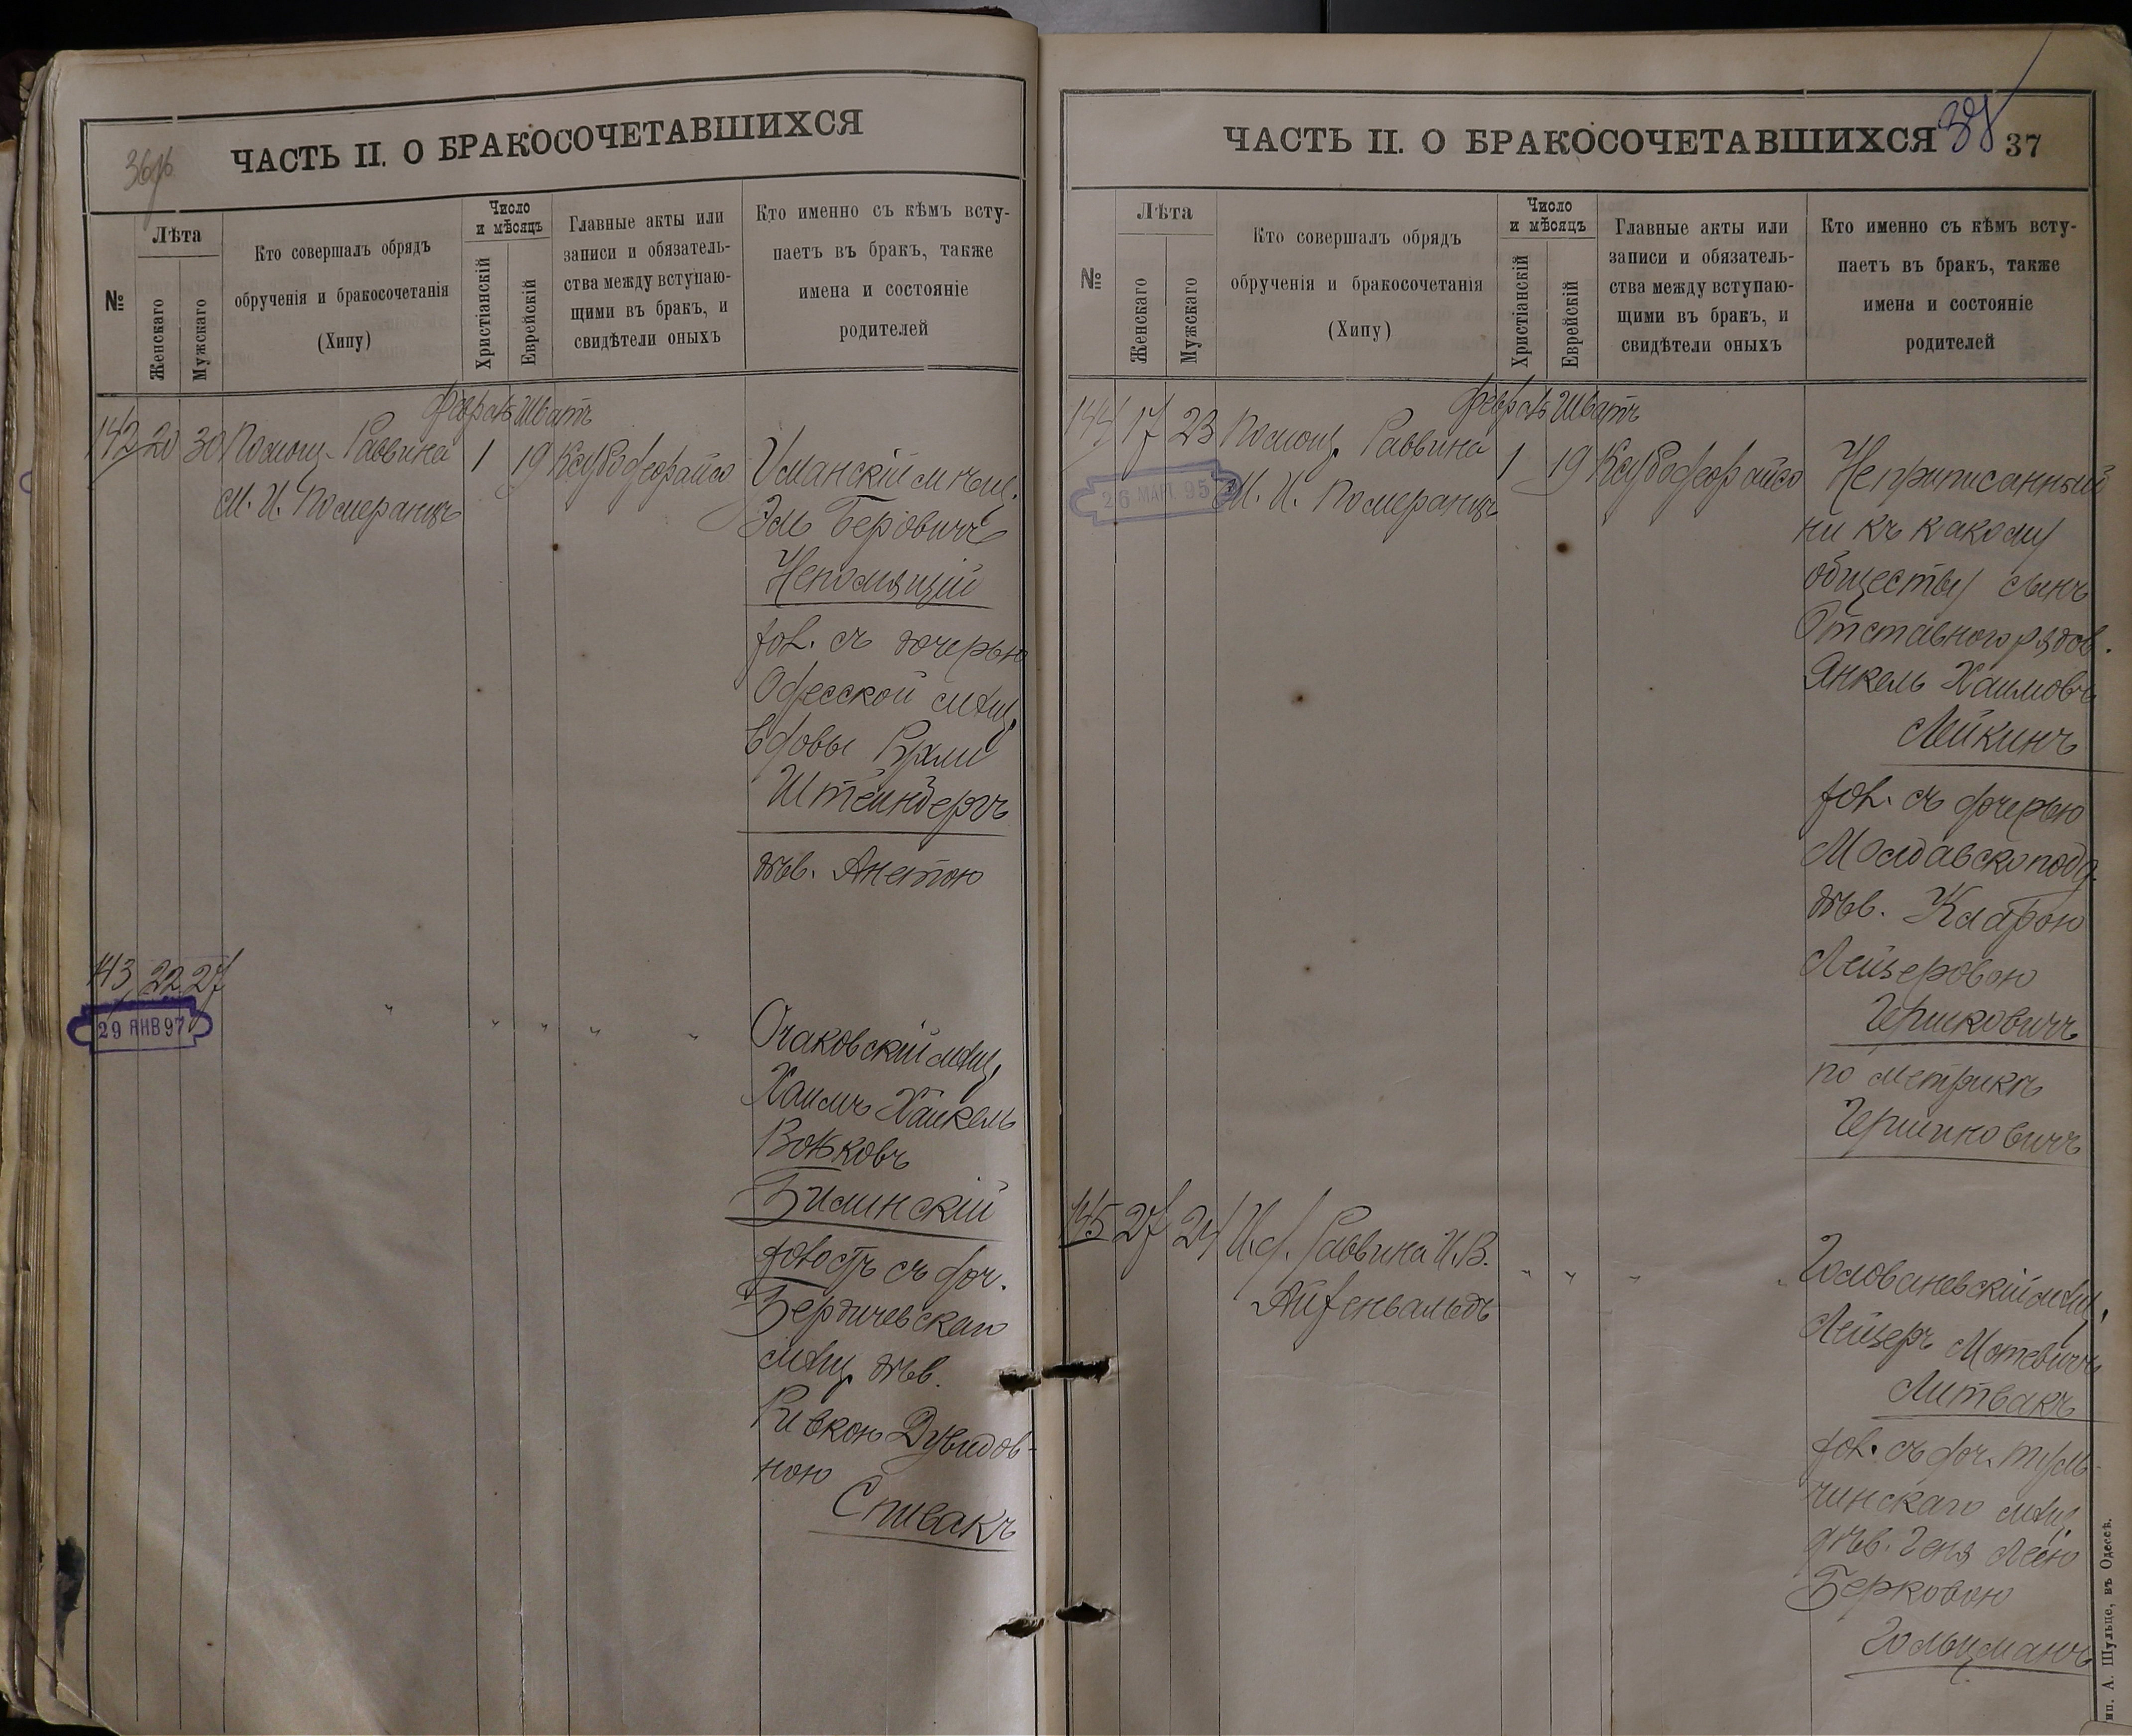 ЧАСТЬ II. О БРАКОСОЧЕТАВШИХСЯ
№
Лѣта
Женскаго
Мужскаго
Кто совершалъ обрядъ
обрученія и бракосочетанія
(Хипу)
Число
и мѣсяцъ
Христіанскій
Еврейскій
Главные акты или
записи и обязатель-
ства между вступаю-
щими въ бракъ, и
свидѣтели оныхъ
Кто именно съ кѣмъ всту-
паетъ въ бракъ, также
имена и состояніе
родителей
142 20 30 Помощ. Раввина
М. И. Померанцъ
Шватъ
1 19
Уманскій мѣщ.
Беровичъ
Непомящій
хол. съ дочерью
Одесской мѣщ.
вдовы Рухли
Штейнбергъ
дѣв. Анетою
143 22 27
29 ЯНВ 97
" " " " "
Очаковскій мѣщ.
Хаимъ Хайкель
Волковъ
Билинскій
холостъ съ доч.
Бердичевскаго
мѣщ. дѣв.
Ривкою Дувидов-
ною
Спивакъ
ЧАСТЬ II. О БРАКОСОЧЕТАВШИХСЯ
37
№
Лѣта
Женскаго
Мужскаго
Кто совершалъ обрядъ
обрученія и бракосочетанія
(Хипу)
Число
и мѣсяцъ
Христіанскій
Еврейскій
Главные акты или
записи и обязатель-
ства между вступаю-
щими въ бракъ, и
свидѣтели оныхъ
Кто именно съ кѣмъ всту-
паетъ въ бракъ, также
имена и состояніе
родителей
144 17 23 Помощ. Раввина
М. И. Померанцъ
26 МАР. 95
Шватъ
1 19
Неприписанный
ни къ какому
обществу сынъ
Отставного рядов.
Янкель Хаимовъ
Лейкинъ
хол. съ дочерью
Молдавскопод.
дѣв. Кларою
Лейзеровою
Гершковичъ
по метрикѣ
Гершковичъ
145 27 24 И. д. Раввина И. В.
Айзенвальдъ
" " " "
Голованевскій мѣщ.
Лейзеръ Мотевичъ
Литвакъ
хол. съ доч. Туль-
чинскаго мѣщ.
дѣв. Геня Леею
Берковою
Гольцманъ
ип. А. Шульце, въ Одессѣ.